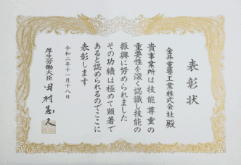 表彰状
金井重要工業株式会社 殿
貴事業所は技能尊重の
重要性を深く認識し技能の
振興に努められました
その功績は極めて顕著で
あると認められるのでここに
表彰します
令和二年十一月十八日
厚生労働大臣 田村憲久